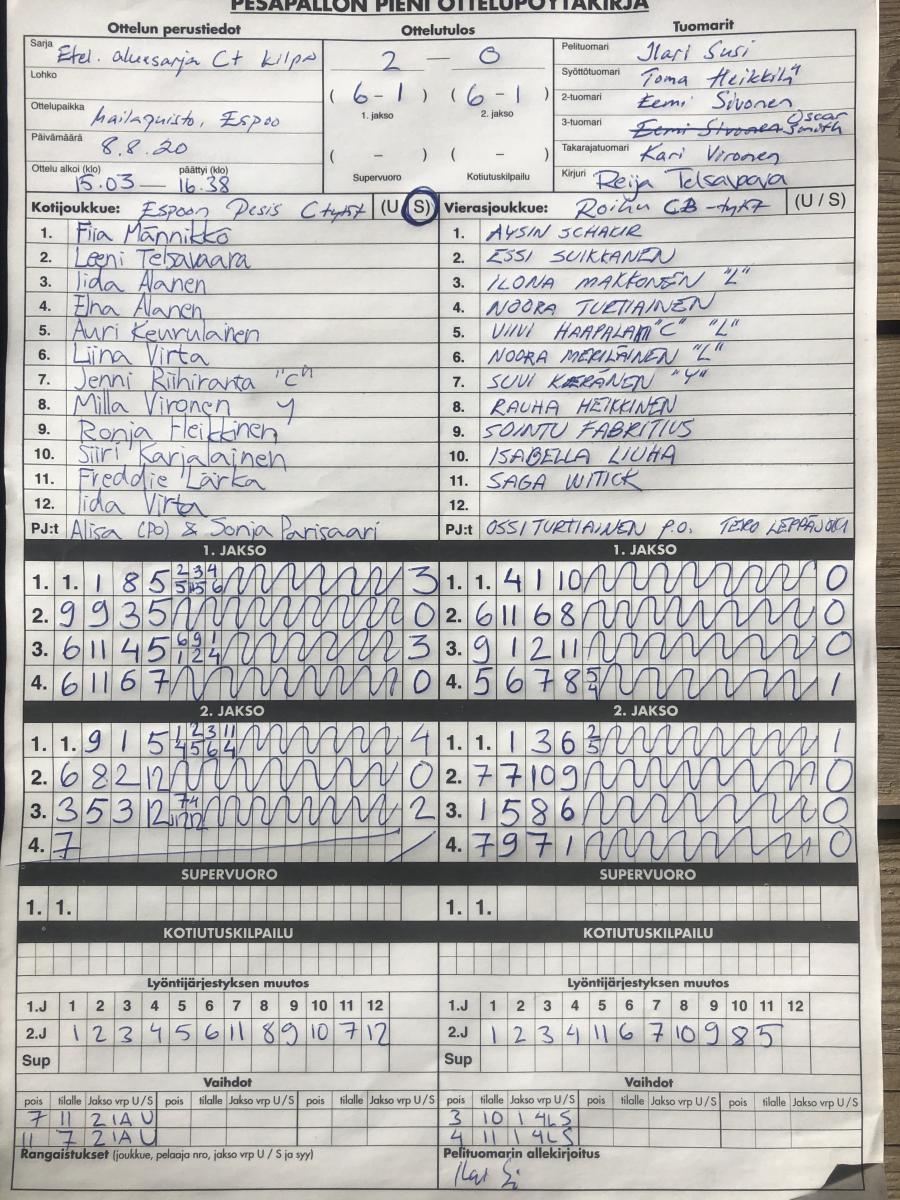 PESÄPALLON PIENI OTTELUPÖYTÄKIRJA
Ottelun perustiedot
Sarja Etel. aluesarja C+ kilpa
Lohko
Ottelupaikka Mailapuisto, Espoo
Päivämäärä 8.8.20
Ottelu alkoi (klo) päättyi (klo)
15.03 — 16.38
Ottelutulos
2 — 0
( 6 - 1 ) ( 6 - 1 )
1. jakso 2. jakso
( - ) ( - )
Supervuoro Kotiutuskilpailu
Tuomarit
Pelituomari Ilari Susi
Syöttötuomari Toma Heikkilä
2-tuomari Eemi Sivonen
3-tuomari Eemi Sivonen Oscar Smith
Takarajatuomari Kari Vironen
Kirjuri Reija Telsavaara
Kotijoukkue: Espoon Pesis C tytöt (U / S)
1. Fiia Männikkö
2. Leeni Telsavaara
3. Iida Alanen
4. Elna Alanen
5. Auri Keurulainen
6. Liina Virta
7. Jenni Riihiranta "C"
8. Milla Vironen y
9. Ronja Heikkinen
10. Siiri Karjalainen
11. Freddie Lärka
12. Iida Virta
PJ:t Alisa (PO) & Sonja Parisaari
Vierasjoukkue: Roihu CB-tytöt (U / S)
1. AYSIN SCHAKIR
2. ESSI SUIKKANEN
3. ILONA MAKKONEN "L"
4. NOORA TURTIAINEN
5. VIIVI HAAPALA "C" "L"
6. NOORA MERILÄINEN "L"
7. SUVI KERÄNEN "Y"
8. RAUHA HEIKKINEN
9. SOINTU FABRITIUS
10. ISABELLA LIUHA
11. SAGA WITICK
12.
PJ:t OSSI TURTIAINEN P.O. TERO LEPPÄJOKI
1. JAKSO
1. 1. 1 8 5 2 3 4 5 6 3
2. 9 9 3 5 0
3. 6 11 4 5 6 9 1 1 2 4 3
4. 6 11 6 7 0
1. JAKSO
1. 1. 4 1 10 0
2. 6 11 6 8 0
3. 9 1 2 11 0
4. 5 6 7 8 5 4 1
2. JAKSO
1. 1. 9 1 5 1 2 3 11 4 5 6 4 4
2. 6 8 2 12 0
3. 3 5 3 12 7 4 2
4. 7
2. JAKSO
1. 1. 1 3 6 2 5 1
2. 7 7 10 9 0
3. 1 5 8 6 0
4. 7 9 7 1 0
SUPERVUORO
1. 1.
SUPERVUORO
1. 1.
KOTIUTUSKILPAILU
KOTIUTUSKILPAILU
Lyöntijärjestyksen muutos
1.J 1 2 3 4 5 6 7 8 9 10 11 12
2.J 1 2 3 4 5 6 11 8 9 10 7 12
Sup
Lyöntijärjestyksen muutos
1.J 1 2 3 4 5 6 7 8 9 10 11 12
2.J 1 2 3 4 11 6 7 10 9 8 5
Sup
Vaihdot
pois tilalle Jakso vrp U/S pois tilalle Jakso vrp U/S pois tilalle Jakso vrp U/S
7 11 2 1A U
11 7 2 1A U
Vaihdot
pois tilalle Jakso vrp U/S pois tilalle Jakso vrp U/S pois tilalle Jakso vrp U/S
3 10 1 4L S
4 11 1 4L S
Rangaistukset (joukkue, pelaaja nro, jakso vrp U / S ja syy)
Pelituomarin allekirjoitus